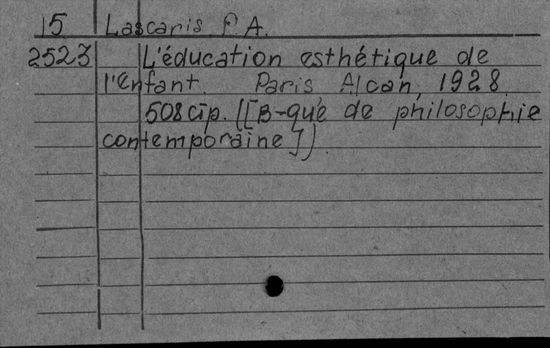 15 Lascaris P. A.
2523 L'éducation esthétique de
l'Enfant. Paris Alcan, 1928.
508 стр. ([B-que de philosophie
contemporaine])